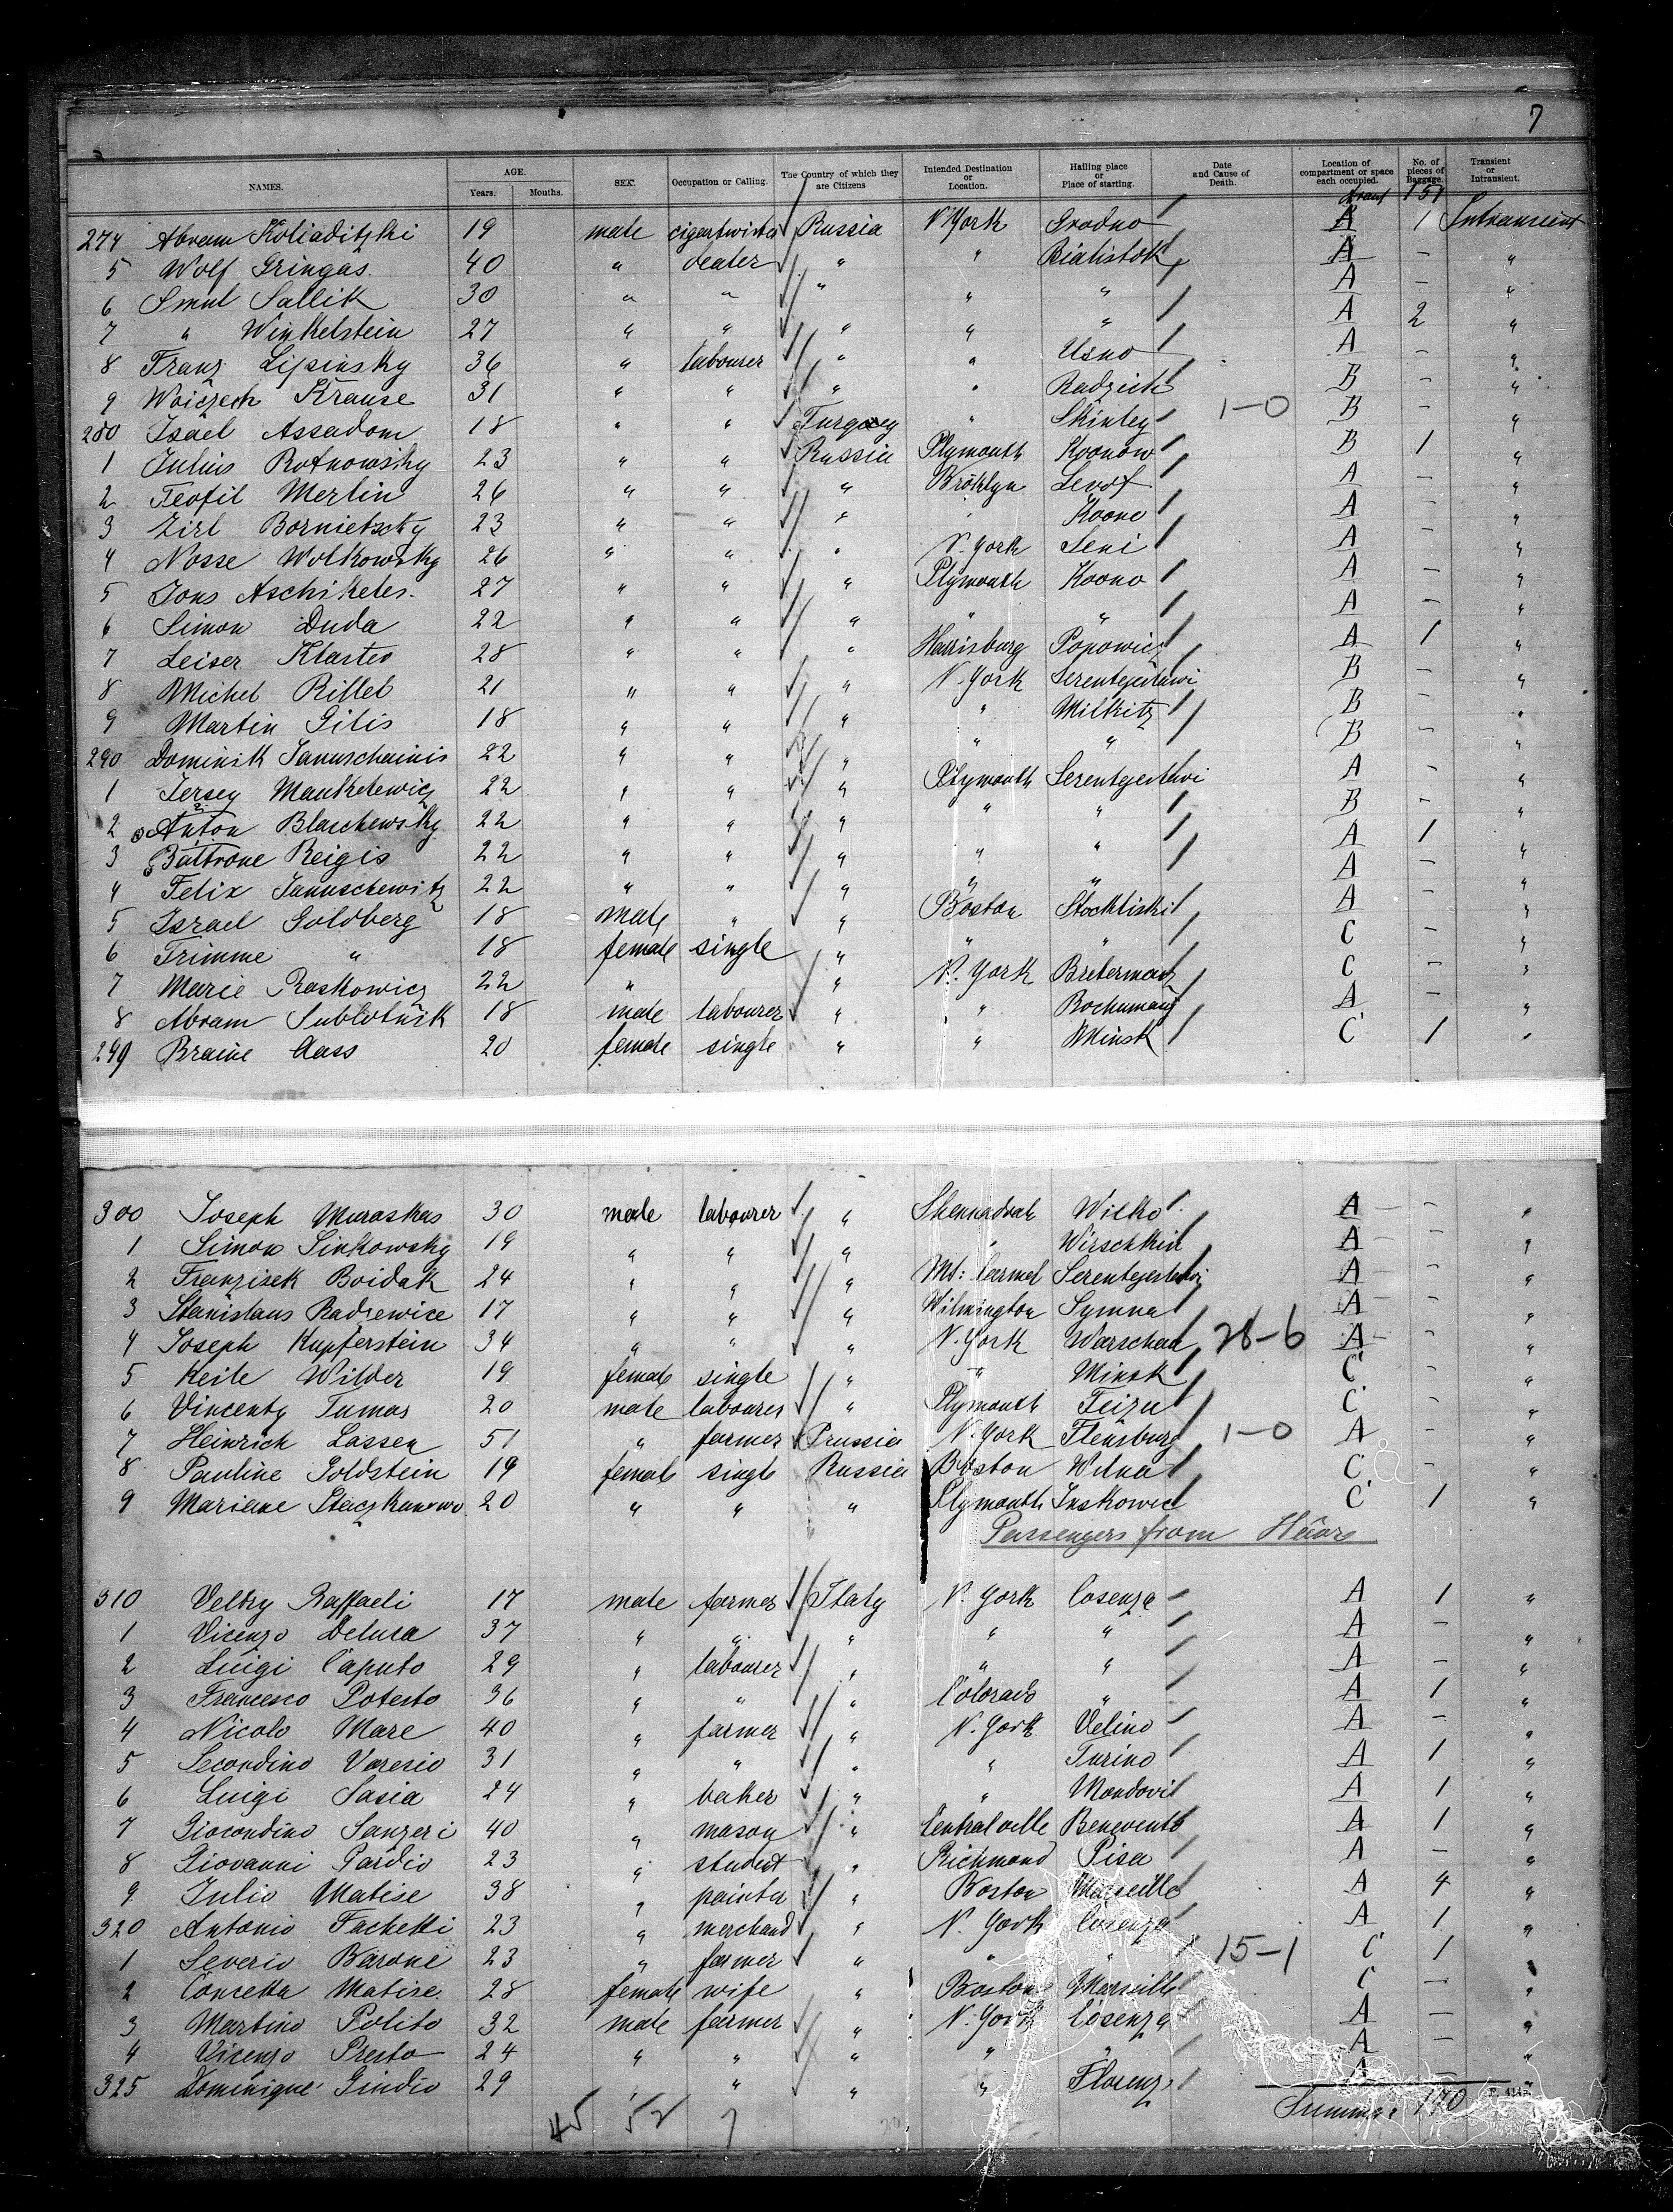 7
NAMES. AGE. Years. Months. SEX. Occupation or Calling. The Country of which they are Citizens Intended Destination or Location. Hailing place or Place of starting. Date and Cause of Death. Location of compartment or space each occupied. No. of pieces of Baggage. Transient or Intransient.
151
274 Abram Koliaditzki 19 male cigartwister Russia N York Grodno A 1 Intransient
5 Wolf Gringas 40 " dealer " " Bialistok A – "
6 Smul Sallik 30 " " " " " A – "
7 " Winkelstein 27 " " " " " A 2 "
8 Franz Lipinsky 36 " labourer " " Usno A – "
9 Woiczech Krause 31 " " " " Radzick B – "
280 Isael Assadom 18 " " Turquey " Skinley 1–0 B – "
1 Julius Rotnowsky 23 " " Russia Plymouth Koonow B 1 "
2 Teofil Merlin 26 " " " Bröklyn Levof A – "
3 Zirl Bornietschy 23 " " " " Koono A – "
4 Nosse Wolkowsky 26 " " " N. York Seni A – "
5 Jons Aschikeles 27 " " " Plymouth Koono A – "
6 Simon Duda 22 " " " " " A – "
7 Leiser Klarteo 28 " " " Harrisburg Ponowicz A 1 "
8 Michel Rillel 21 " " " N. York Serentejestawi B – "
9 Martin Gilis 18 " " " " Milkitz B – "
290 Dominik Januschainis 22 " " " " " B – "
1 Jersey Mankelewicz 22 " " " Plymouth Serentejestawi A – "
2 Anton Blaschewsky 22 " " " " " B – "
3 Baltrone Reigis 22 " " " " " A 1 "
4 Felix Januschewitz 22 " " " " " A – "
5 Israel Goldberg 18 male " " Boston Stockliski A – "
6 Trimme " 18 female single " " " C – "
7 Marie Raskowicz 22 " " N. York Bretermanz C – "
8 Abram Sublotnik 18 male labourer " " Bochumanz A – "
299 Braine Aass 20 female single " " Minsk C 1 "
300 Joseph Muraskas 30 male labourer " Shennadoah Wilko A – "
1 Simon Sinkowsky 19 " " " " Wirschkin A – "
2 Franzisek Boidak 24 " " " Mt: Carmel Serentejestawi A – "
3 Stanislaus Radzewice 17 " " " Wilmington Symna A – "
4 Joseph Kupferstein 34 " " " N. York Warschau 28–6 A – "
5 Keile Wilder 19 female single " " Minsk C – "
6 Vincenty Tumas 20 male labourer " Plymouth Feizu C – "
7 Heinrich Lassen 51 " farmer Prussia N. York Flensburg 1–0 A – "
8 Pauline Goldstein 19 female single Russia Boston Wilna C – "
9 Mariane Staczkunowo 20 " " " Plymouth Inskowec C 1 "
Passengers from Hâvre
310 Veltry Raffaeli 17 male farmer Italy N. York Cosenza A 1 "
1 Vicenzo Deluca 37 " " " " " A – "
2 Luigi Caputo 29 " labourer " " " A – "
3 Francesco Potesto 36 " " " Colorado " A 1 "
4 Nicolo Mare 40 " farmer " N. York Velino A – "
5 Secondino Varesio 31 " " " " Turino A 1 "
6 Luigi Sasia 24 " baker " " Mondovi A 1 "
7 Giocondino Sanzeri 40 " mason " Centralville Benevento A 1 "
8 Giovanni Pardio 23 " student " Richmond Pisa A – "
9 Julio Matise 38 " painter " Boston Marseille A 4 "
320 Antonio Fachetti 23 " merchand " N. York Cosenza A 1 "
1 Severio Barone 23 " farmer " " " 15–1 C 1 "
2 Concetta Matise 28 female wife " Boston Marseille C – "
3 Martino Polito 32 male farmer " N. York Cosenza A – "
4 Vicenzo Presto 24 " " " " " A – "
325 Dominique Gindio 29 " " " " Florenz A – "
45 52 7 Summa: 170